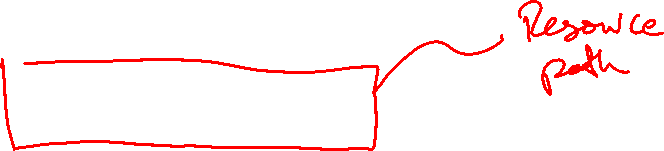 Resource
path